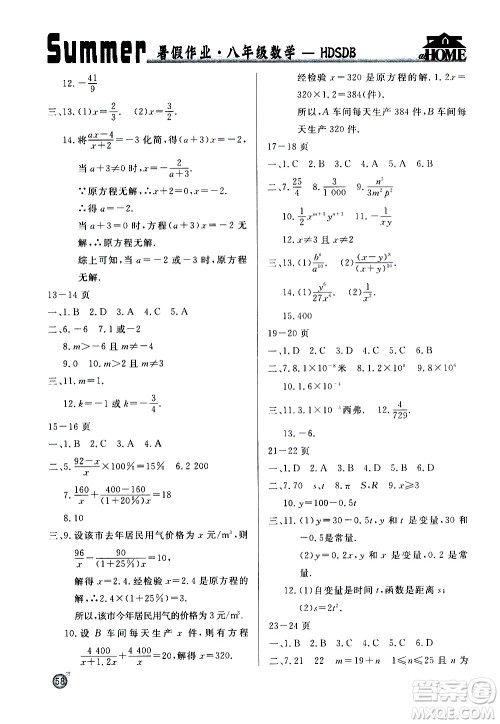 Summer 暑假作业·八年级数学—HDSDB
@HOME
12. -41/9
三、13. (1)x=2/3. (2)x=1/2.
14. 将(ax-4)/(x+2)=-3化简,得(a+3)x=-2.
当a+3≠0时,x=-2/(a+3).
∵原方程无解,∴x=-2.
∴得a=-2.
当a+3=0时,原方程无解.
∴a=-3.
综上可知,当a=-3或a=-2时,原方程
无解.
13-14页
一、1. B 2. A 3. D 4. D
二、5. -6 6. -6 7. 1或-2
8. m>-6且m≠-4 9. m>2且m≠3
10. 0
三、11. m=1.
12. k=-1或k=-1/2.
15-16页
一、1. B 2. D 3. A 4. C
二、5. (92-x)/x×100%=15% 6. 2 200
7. 160/x+(400-160)/((1+20%)x)=18
8. 10
三、9. 设该市去年居民用气价格为x元/m³,
96/x-90/((1+25%)x)=10.
解得x=2.4. 经检验x=2.4是原方程的解.
所以,该市今年居民用气的价格为3元/m³.
10. 设B车间每天生产x件,则有方程
4 400/(x+1.2x)+4 400/x=20. 解得x=320.
58
经检验x=320是原方程的解.
320×1.2=384(件).
所以,A车间每天生产384件,B车间每
天生产320件.
17-18页
一、1. C 2. B 3. D 4. A 5. C 6. B
二、7. 25/4 8. 1/1 000 9. n²/(m³p²)
10. (1/2)xᵐ⁺¹yⁿ⁺² 11. -1/(xy)
12. x≠3
三、13. (1)b⁸/a¹⁰. (2)(x-y)⁸/(x+y)¹⁰.
14. (1)y⁶/(27x⁶). (2)x/y.
15. 400
19-20页
一、1. C 2. D 3. A 4. B 5. D 6. C
二、7. 3.1×10⁻⁸米 8. 1.2×10⁸ 9. 1.1×10⁵
10. 6×10⁻⁴
三、11. 1×10⁻⁵西弗. 12. 4/729.
13. -6.
21-22页
一、1. D 2. C 3. B 4. C 5. B
二、6. s,t 7. V,R 8. π 9. x≥-2
10. y=100-0.5t
三、11. (1)y=100-0.5t,y和t是变量,100和
-0.5是常量. (2)y=0.2x,x,y是变量,
0.2是常量.
12. (1)自变量是时间t,函数是距离s;
(2)s=½t.
23-24页
一、1. B 2. C 3. D 4. D 5. A 6. B
二、7. 21 22 m 1≤x≤22且n为
答案圈